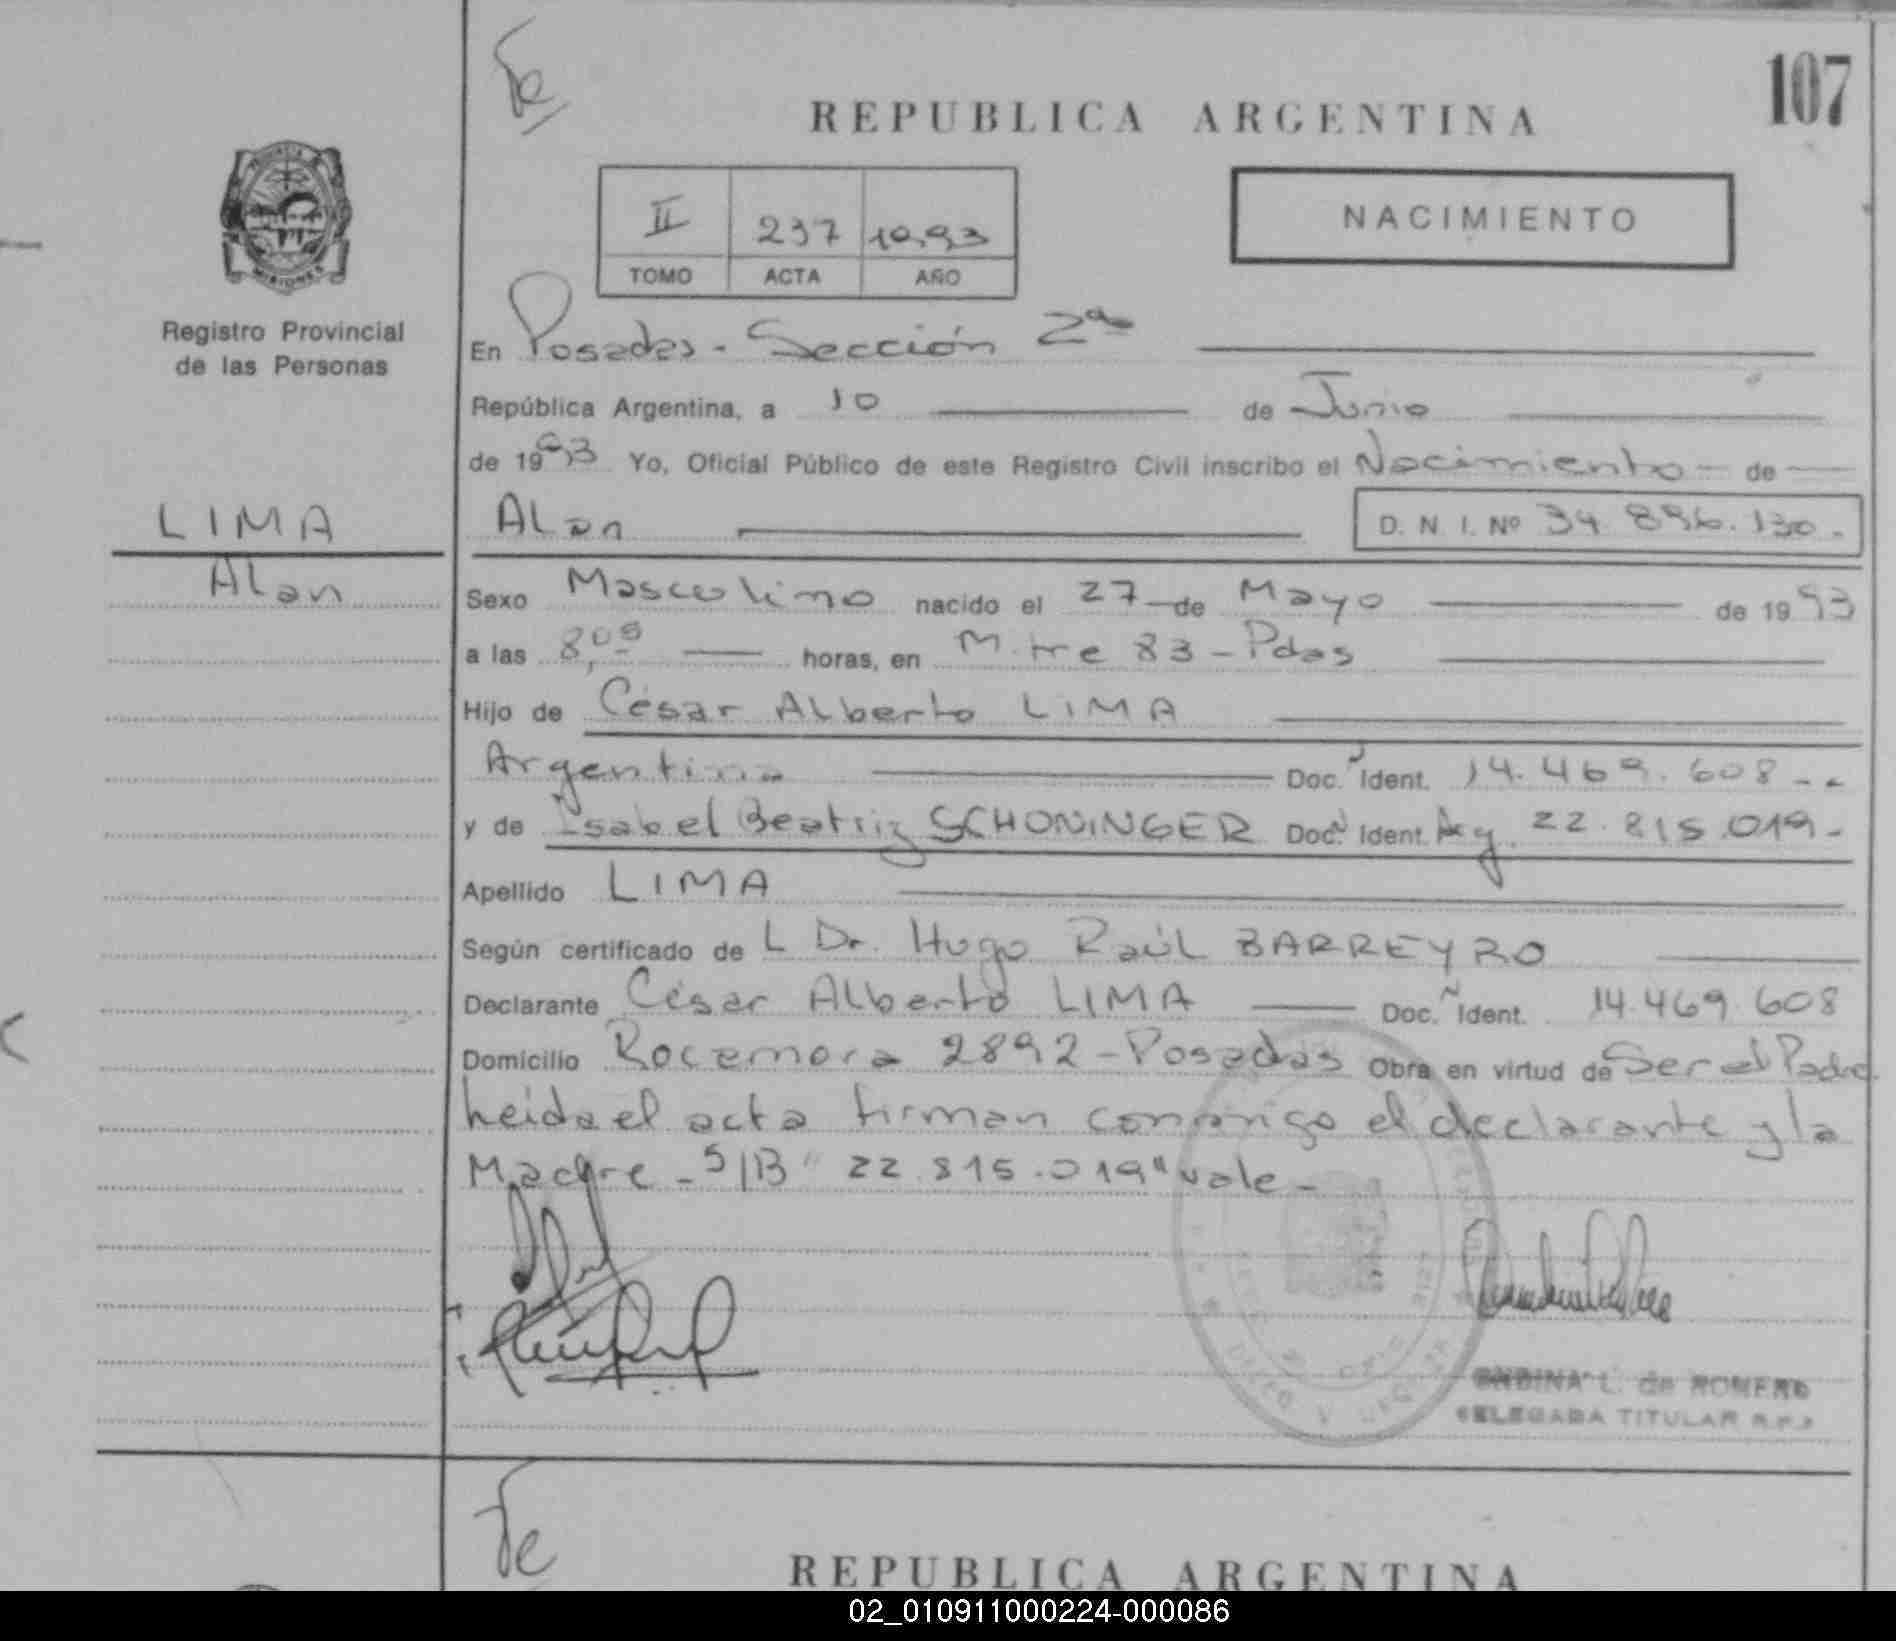 107
REPUBLICA ARGENTINA
PROVINCIA DE
MISIONES
Registro Provincial
de las Personas
II 237 1993
TOMO ACTA AÑO
NACIMIENTO
En Posadas - Sección 2ª
República Argentina, a 10 de Junio
de 1993 Yo, Oficial Público de este Registro Civil inscribo el Nacimiento - de
LIMA
Alan
ALan D. N. I. Nº 34.896.130.
Sexo Masculino nacido el 27 de Mayo de 1993
a las 8,05 horas, en Mitre 83 - Pdas
Hijo de César ALberto LIMA
Argentina Doc. Ident. 14.469.608 - -
y de Isabel Beatriz SCHONINGER Doc. Ident. Arg. 22.815.019 -
Apellido LIMA
Según certificado de L Dr. Hugo RaúL BARREYRO
Declarante César ALberto LIMA Doc. Ident. 14.469.608
Domicilio Rocamora 2892 - Posadas Obra en virtud de Ser el Padre.
Leida el acta firman conmigo el declarante y la
Madre - S/B "22.815.019" vale -
L. de ROMERO
DELEGADA TITULAR R.P.
REPUBLICA ARGENTINA
02_010911000224-000086